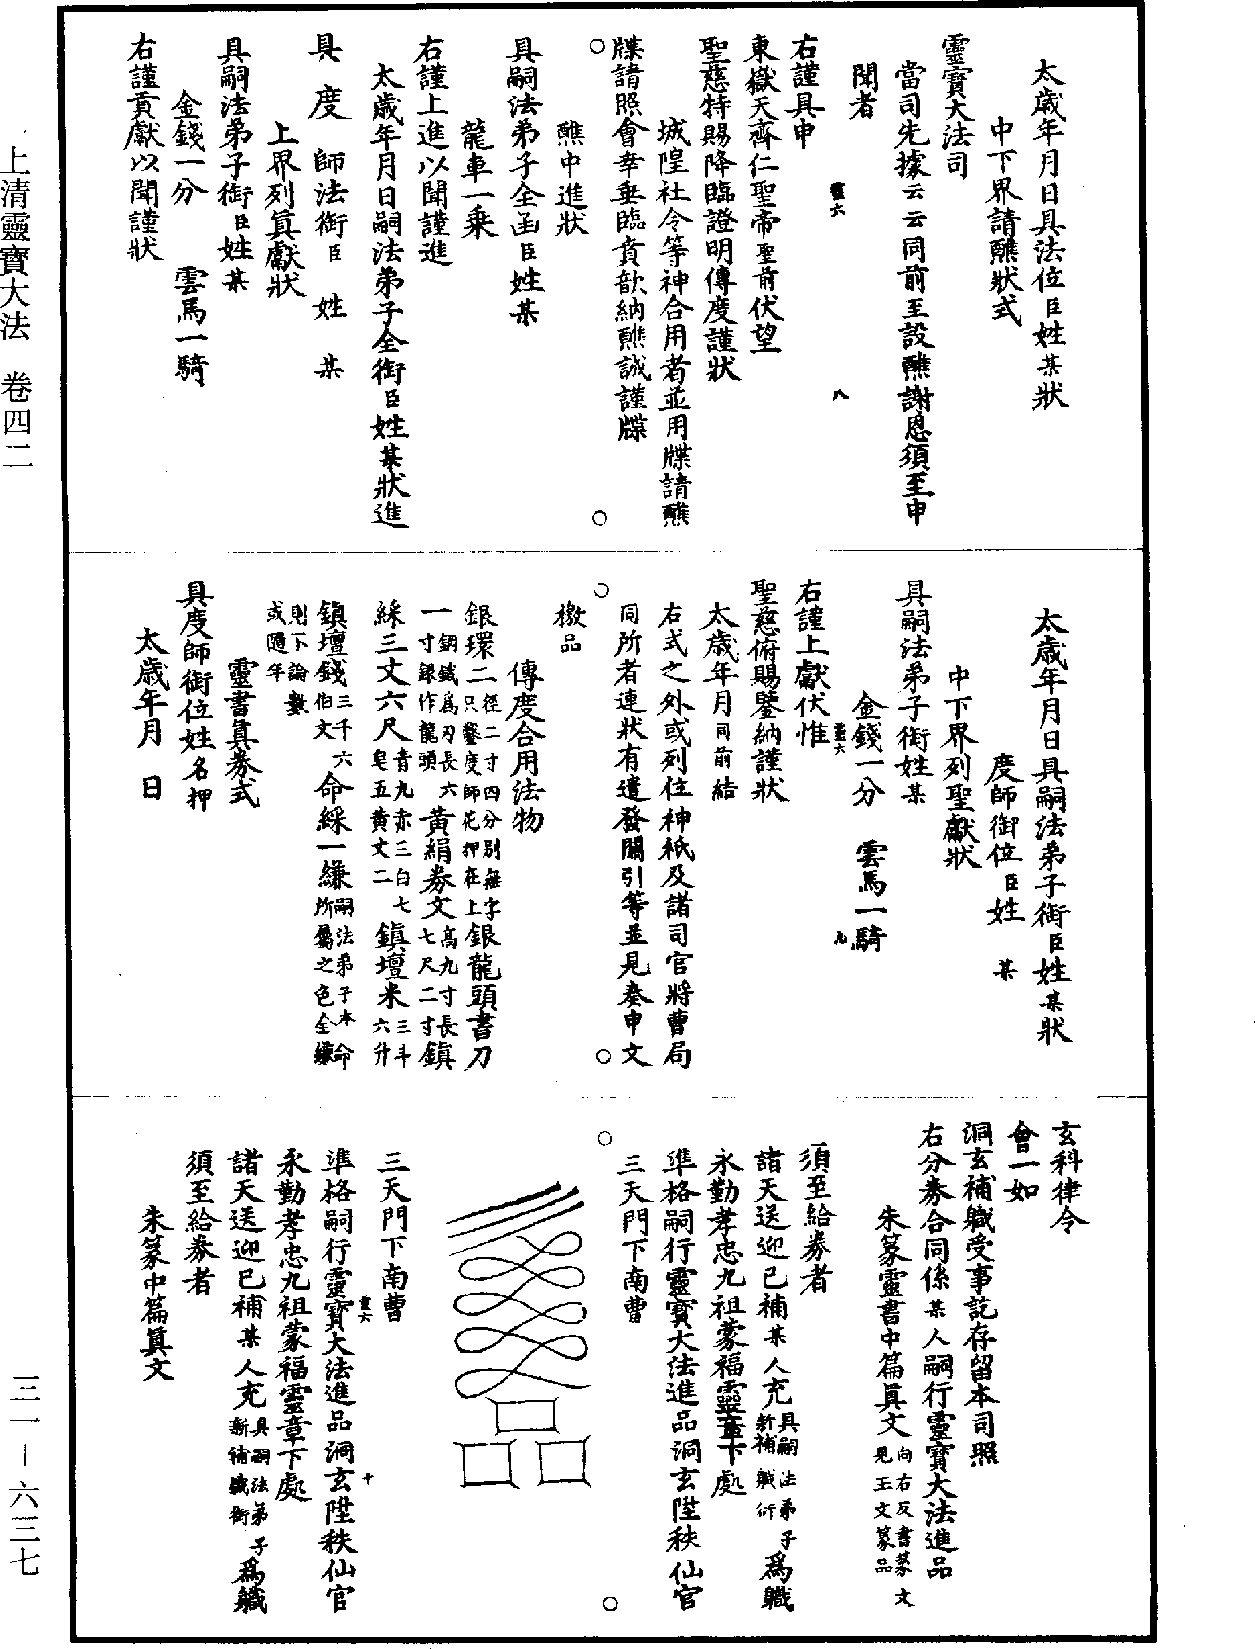 上清靈寶大法　卷四二
三一－六三七
太歲年月日具法位臣姓某狀
中下界請醮狀式
靈寶大法司
當司先據云云同前至設醮謝恩須至申
聞者
靈六　八
右謹具申
東嶽天齊仁聖帝聖前伏望
聖慈特賜降臨證明傳度謹狀
城隍社令等神合用者並用牒請醮
牒請照會幸垂臨賁歆納醮誠謹牒
○　○
醮中進狀
具嗣法弟子全函臣姓某
龍車一乘
右謹上進以聞謹進
太歲年月日嗣法弟子全銜臣姓某狀進
具　度　師法銜臣　姓　某
上界列真獻狀
具嗣法弟子銜臣姓某
金錢一分　雲馬一騎
右謹貢獻以聞謹狀
太歲年月日具嗣法弟子銜臣姓某狀
度師銜位臣姓　某
中下界列聖獻狀
具嗣法弟子銜姓某
金錢一分　雲馬一騎
靈六　九
右謹上獻伏惟
聖慈俯賜鑒納謹狀
太歲年月同前結
右式之外或列位神祇及諸司官將曹局
同所者連狀有遣發關引等並見奏申文
○　○
檄品
傳度合用法物
銀環二徑二寸四分別無字
只鑿度師花押在上銀龍頭書刀
一銅鐵為刃長六
寸銀作龍頭黃絹券文高九寸長
七尺二寸鎮
綵三丈六尺青九赤三白七
皂五黃丈二鎮壇米三斗
六升
鎮壇錢三千六
伯文命綵一縑嗣法弟子本命
所屬之色全縑
則下論數
或隨年
靈書真券式
具度師銜位姓名押
太歲年月　日
玄科律令
會一如
洞玄補職受事訖存留本司照
右分券合同係某人嗣行靈寶大法進品
朱篆靈書中篇真文向右反書篆文
見玉文篆品
須至給券者
諸天送迎已補某人充具嗣法弟子
新補職銜為職
永勤孝忠九祖蒙福靈章下處
準格嗣行靈寶大法進品洞玄陞秩仙官
三天門下南曹
○　○
三天門下南曹
靈六　十
準格嗣行靈寶大法進品洞玄陞秩仙官
永勤孝忠九祖蒙福靈章下處
諸天送迎已補某人充具嗣法弟子
新補職銜為職
須至給券者
朱篆中篇真文